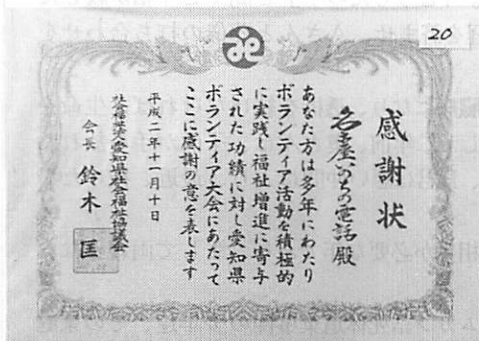 20
感謝状
名古屋いのちの電話殿
あなた方は多年にわたり
ボランティア活動を積極的
に実践し福祉増進に寄与
された功績に対し愛知県
ボランティア大会にあたって
ここに感謝の意を表します
平成二年十一月十日
社会福祉法人愛知県社会福祉協議会
会長 鈴木 匡